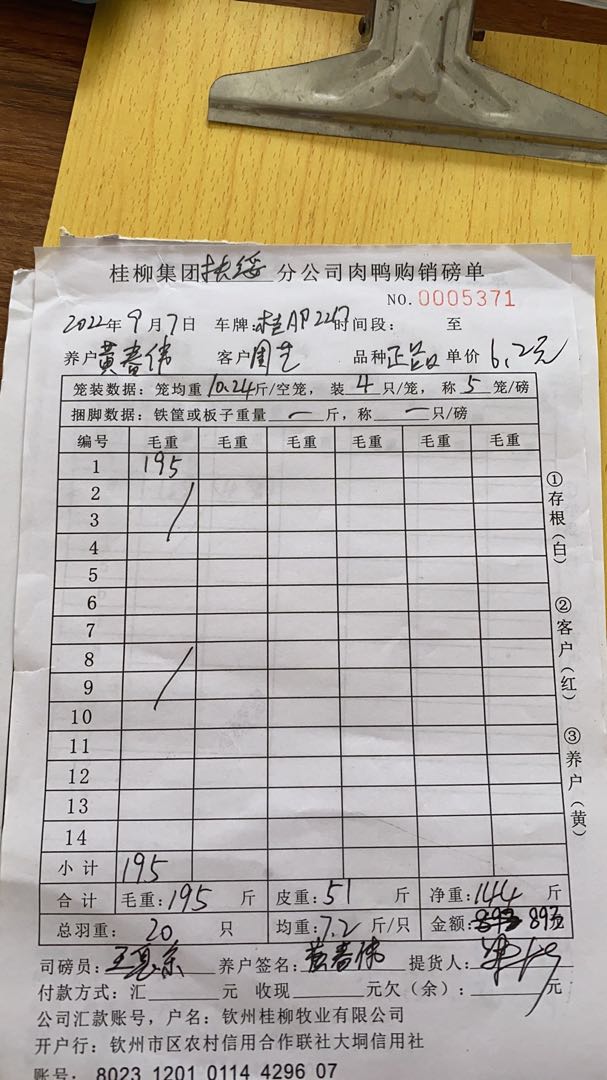 桂柳集团扶绥分公司肉鸭购销磅单
NO.0005371
2022年9月7日 车牌:桂AP2247时间段: 至
养户黄春伟 客户周艺 品种正品 单价6.2元
笼装数据:笼均重10.24斤/空笼,装4只/笼,称5笼/磅
捆脚数据:铁筐或板子重量一斤,称一只/磅
编号 毛重 毛重 毛重 毛重 毛重 毛重
1 195
2
3
4
5
6
7
8
9
10
11
12
13
14
小计 195
合计 毛重:195斤 皮重:51斤 净重:144斤
总羽重:20只 均重:7.2斤/只 金额:893元
①存根(白)
②客户(红)
③养户(黄)
司磅员: 养户签名:黄春伟 提货人:
付款方式:汇 元 收现 元欠(余): 元
公司汇款账号,户名:钦州桂柳牧业有限公司
开户行:钦州市区农村信用合作联社大垌信用社
账号:8023 1201 0114 4296 07